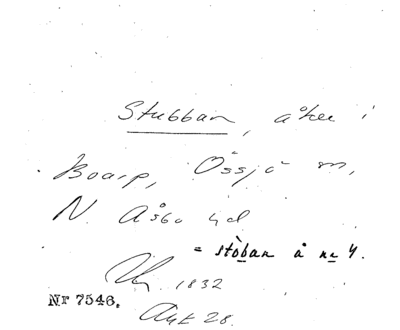 Stubban, åker i
Boarp, Össjö sn,
N. Åsbo hd
= stòban å nr 4.
1832
Nr 7546.
Ark 28.